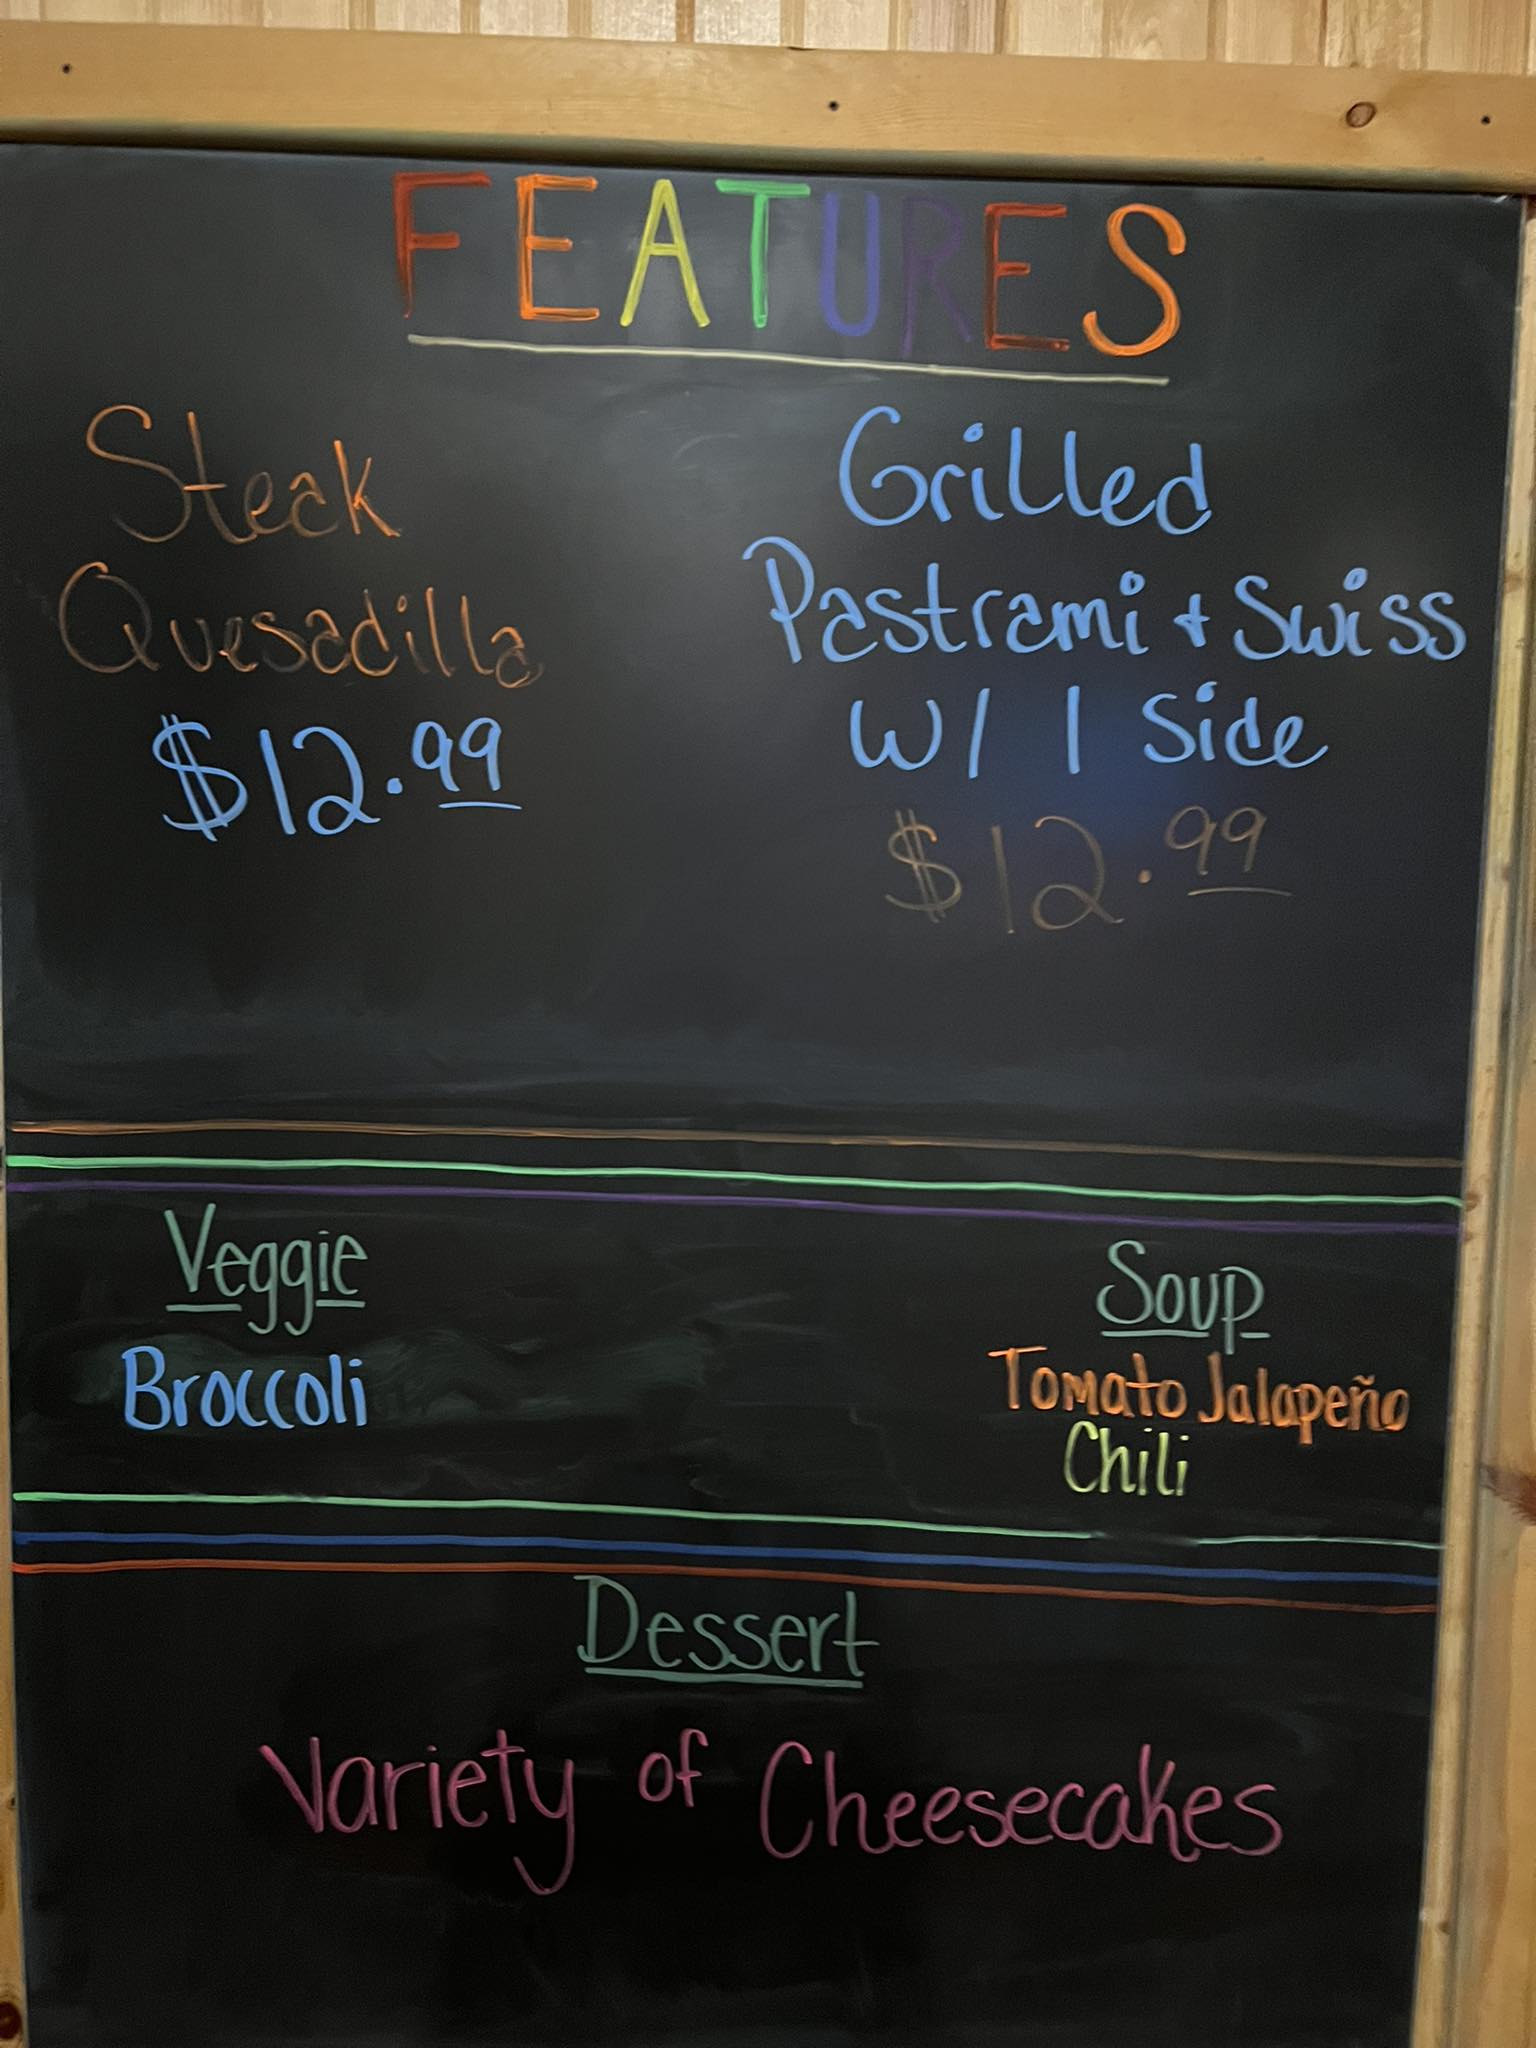 FEATURES
Steak
Quesadilla
$12.99
Grilled
Pastrami + Swiss
W/ 1 Side
$12.99
Veggie
Broccoli
Soup
Tomato Jalapeño
Chili
Dessert
Variety of Cheesecakes